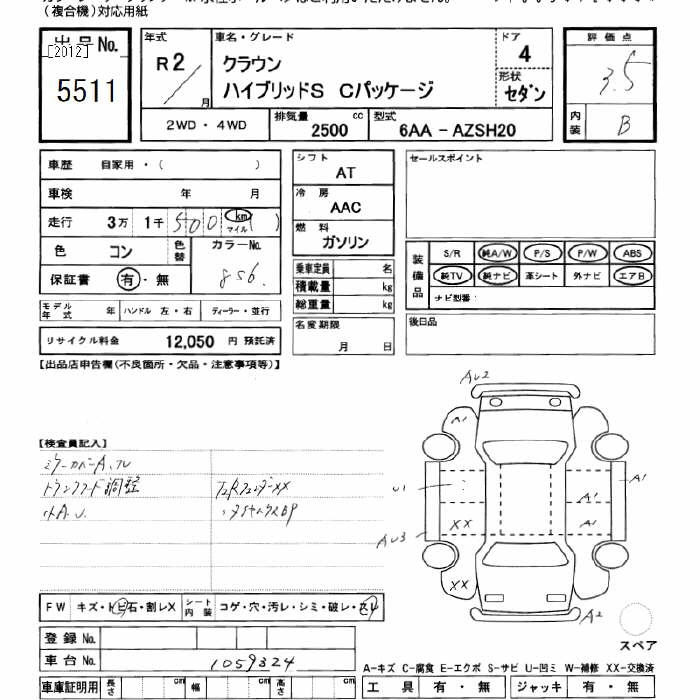 (複合機)対応用紙
出品No.
[2012]
5511
年式
R2/月
車名・グレード
クラウン
ハイブリッドS Cパッケージ
ドア
4
形状
セダン
評価点
3.5
内装
B
2WD・4WD
排気量
2500
cc
型式
6AA-AZSH20
車歴 自家用・( )
車検 年 月
走行 3万 1千 500 km マイル( )
色 コン 色替 カラーNo. 856
保証書 有・無
モデル年式 年 ハンドル 左・右 ディーラー・並行
リサイクル料金 12,050 円 預託済
シフト
AT
冷房
AAC
燃料
ガソリン
乗車定員 名
積載量 kg
総重量 kg
名変期限
月 日
セールスポイント
装備品
S/R 純A/W P/S P/W ABS
純TV 純ナビ 革シート 外ナビ エアB
ナビ型番:
後日品
【出品店申告欄(不良箇所・欠品・注意事項等)】
【検査員記入】
ミラーカバーA、フレ
トランクフード調整
小A.U.
AU2
A1
U1
A1
A1
A1
AU3
XX
XX
A2
スペア
FW キズ・トビ石・割レX シート内装 コゲ・穴・汚レ・シミ・破レ・スレ
登録No.
車台No. 1059324
A-キズ C-腐食 E-エクボ S-サビ U-凹ミ W-補修 XX-交換済
車庫証明用 長さ cm 幅 cm 高さ cm
工具 有・無 ジャッキ 有・無